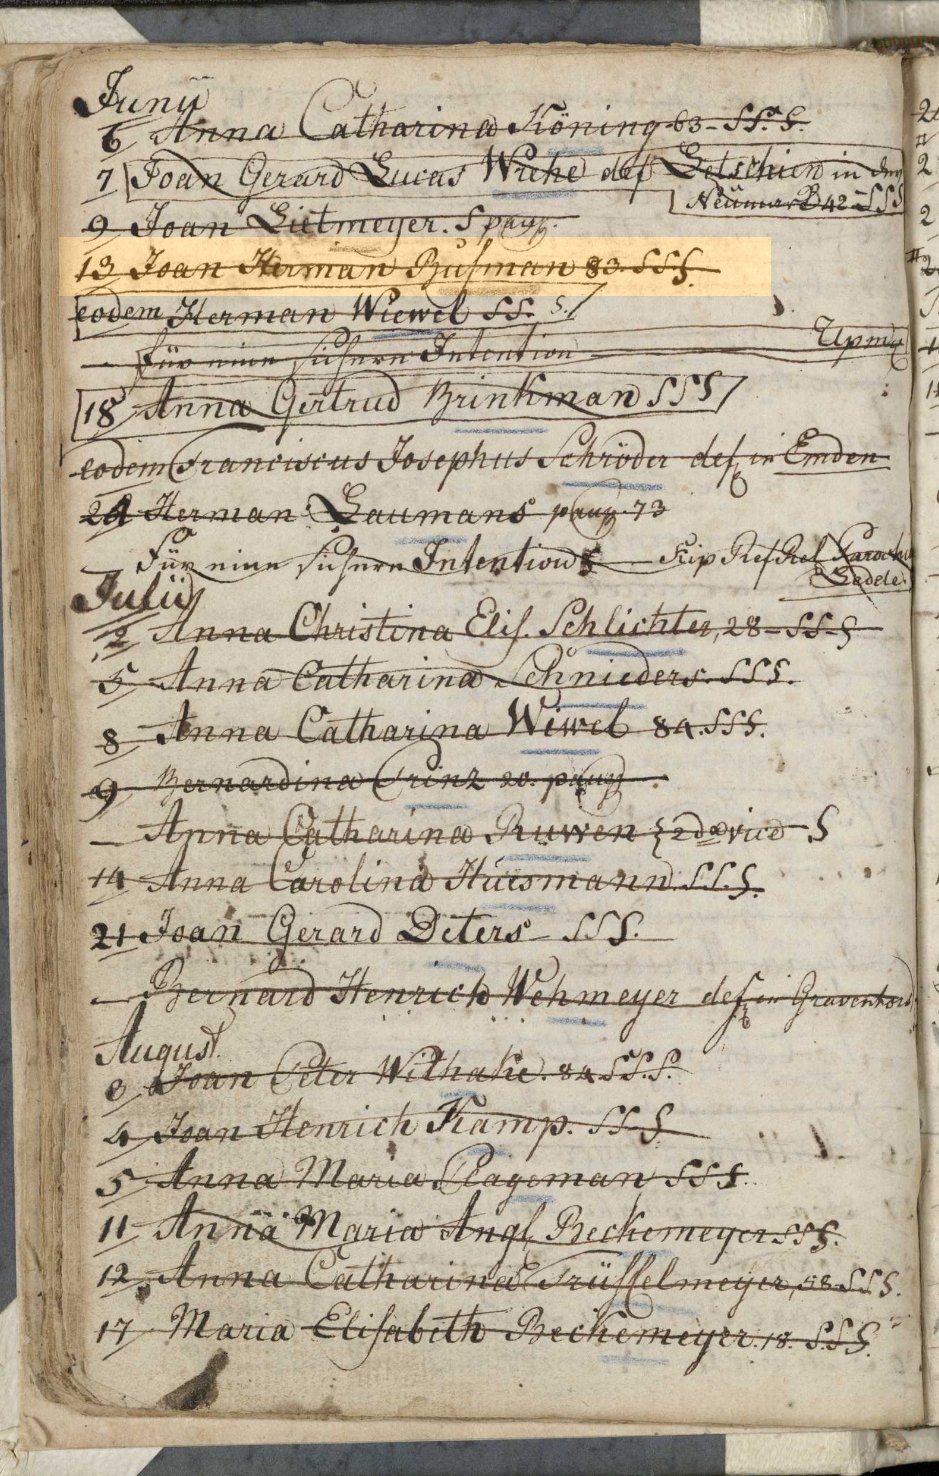 Junÿ
6 Anna Catharina Köning 63 - SS. S.
7 Joan Gerard Lucas Wiche def Letschin in der
Neümark 42 - SSS
9 Joan Lietmeyer. S paup.
13 Joan Herman Busman 83. SSS.
eodem Herman Wiewel SS. S.
Für eine sichere Intention
18 Anna Gertrud Brinkman SSS
eodem Franciscus Josephus Schröder def. in Emden
24 Herman Laumans paup. 73
Für eine sichere Intention
Julÿ
2 Anna Christina Elis. Schlichter, 28 - SS-S
5 Anna Catharina Schnieders. SSS.
8 Anna Catharina Wiwel 84. SSS.
9 Bernardina Prinz 20. paup.
Anna Catharina Ruwen S
14 Anna Carolina Huismann. S.S.S.
21 Joan Gerard Deters - SSS.
Bernard Henrich Wehmeyer def. in Gravenhorst
August.
3 Joan Peter Withake. 84 SS.S.
4 Joan Henrich Kamp. SS S
5 Anna Maria Plageman SSS.
11 Anna Maria Angl. Beckemeyer SSS.
12 Anna Catharina Trüffelmeyer, 58 SSS.
17 Maria Elisabeth Beckemeyer. 18. S.SS.